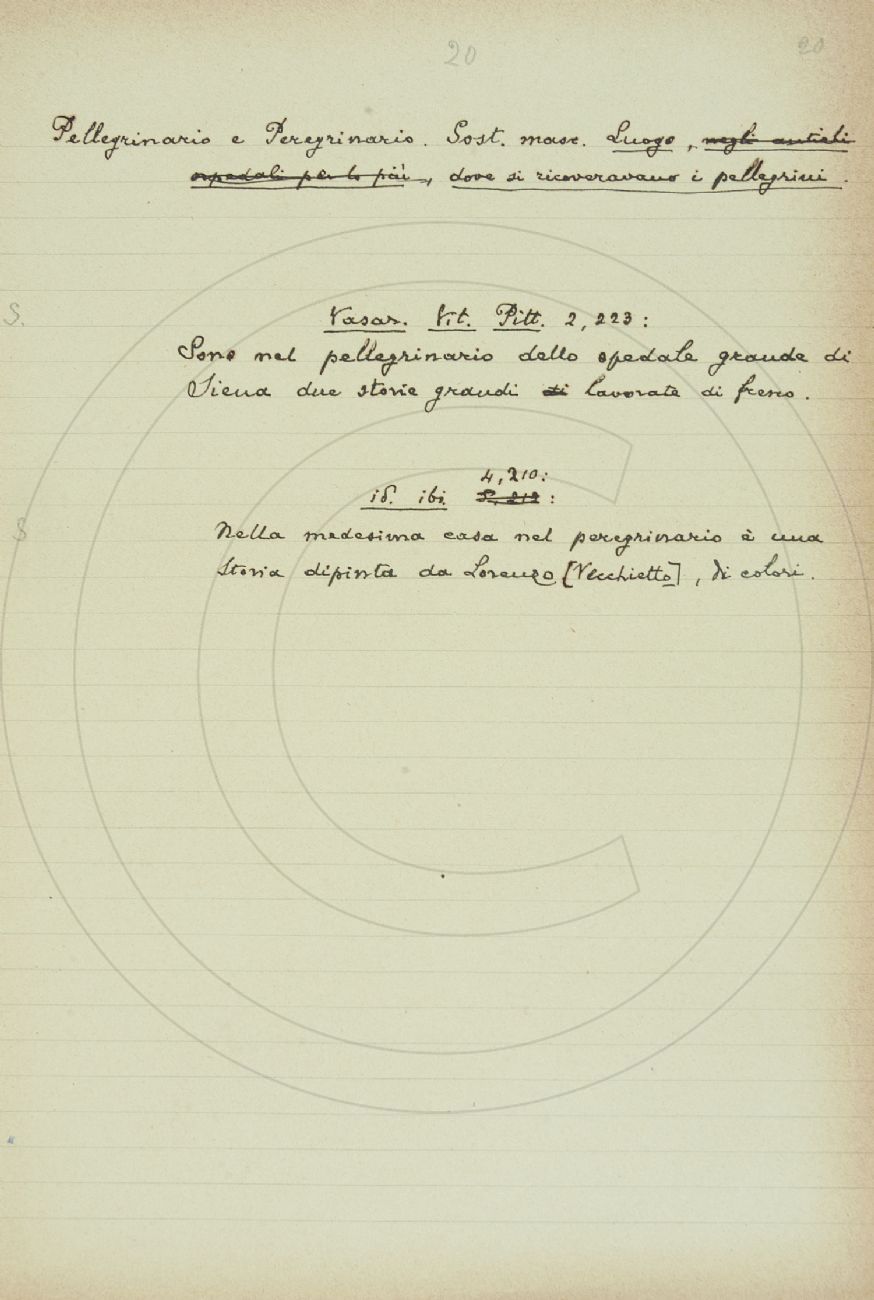 20 20
Pellegrinario e Peregrinario. Sost. masc. Luogo, negli antichi
ospedali per lo più, dove si ricoveravano i pellegrini.
S. Vasar. Vit. Pitt. 2, 223:
Sono nel pellegrinario dello spedale grande di
Siena due storie grandi di lavorate di fresco.
4, 210:
id. ibi. 5, 212 :
S Nella medesima casa nel peregrinario è una
storia dipinta da Lorenzo [Vecchietto], di colori.